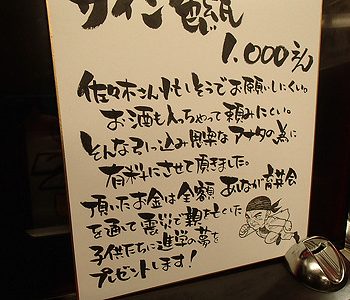 サイン色紙
1,000えん
佐々木さん忙しそうでお願いしにくい。
お酒も入っちゃって頼みにくい。
そんな引っ込み思案なアナタの為に
有料にさせて頂きました。
頂いたお金は全額 あしなが育英会
を通じて震災で親を亡くした
子供たちに進学の夢を
プレゼントします!